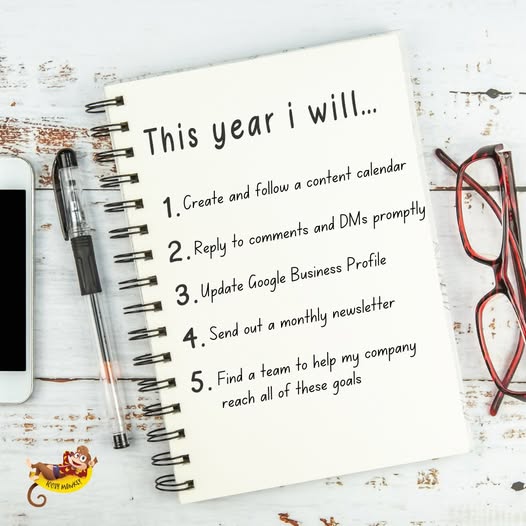 This year i will...
1. Create and follow a content calendar
2. Reply to comments and DMs promptly
3. Update Google Business Profile
4. Send out a monthly newsletter
5. Find a team to help my company
reach all of these goals